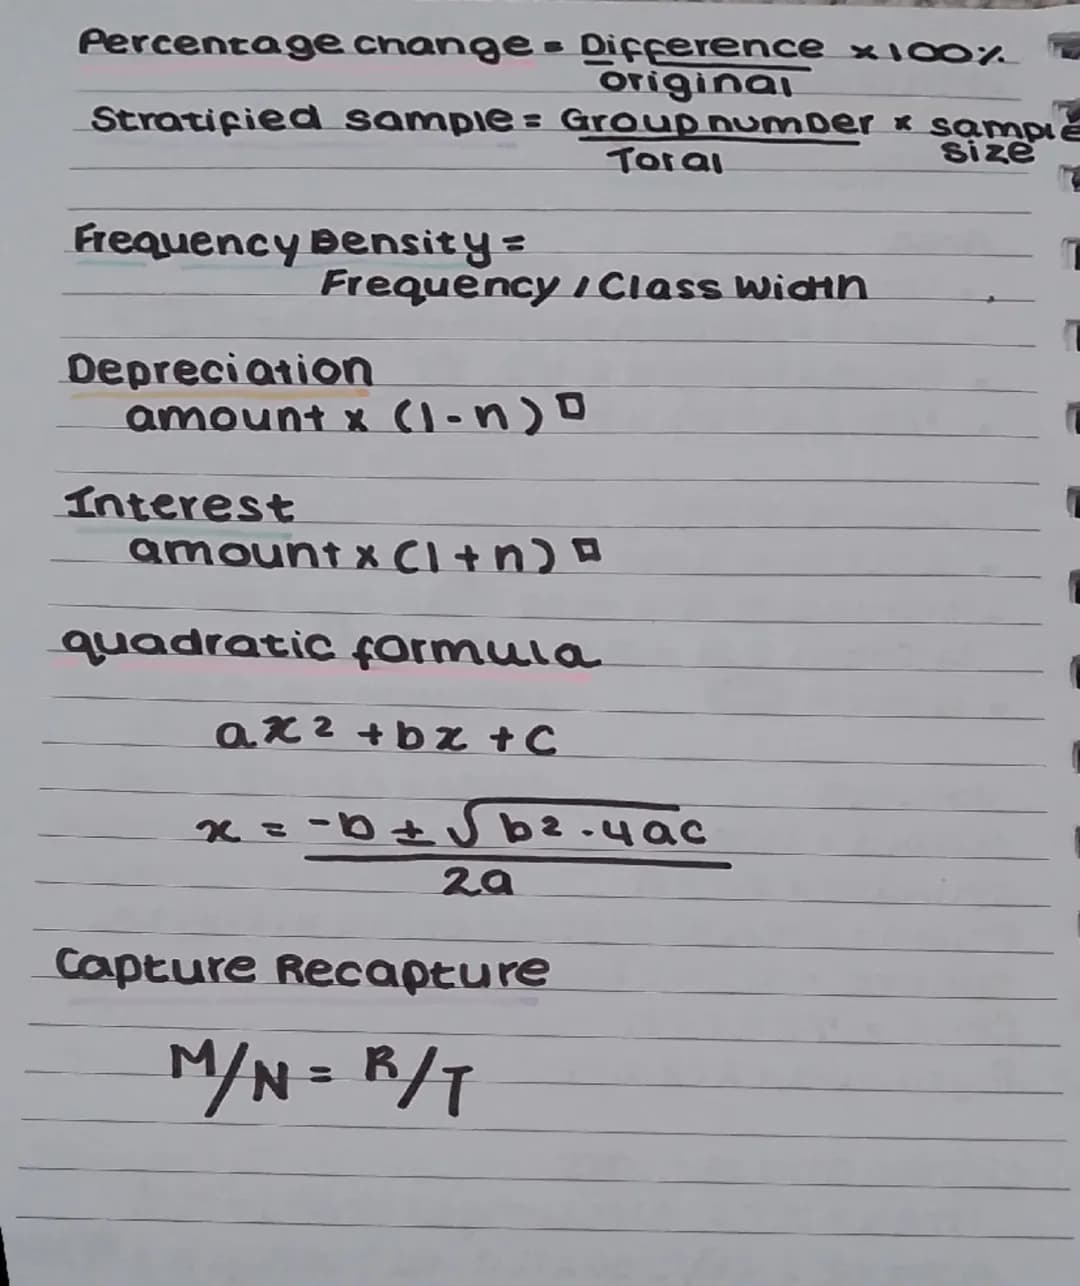 Percentage change = Difference x 100%
original
Stratified sample = Group number x sample
Total size
Frequency Density =
Frequency / Class Width
Depreciation
amount x (1-n)□
Interest
amount x (1+n)□
quadratic formula
ax2 +bx +c
x = -b ± √b2-4ac
2a
Capture Recapture
M/N = R/T